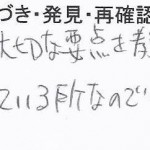 づき・発見・再確認
大切な要点を教
ている所なので